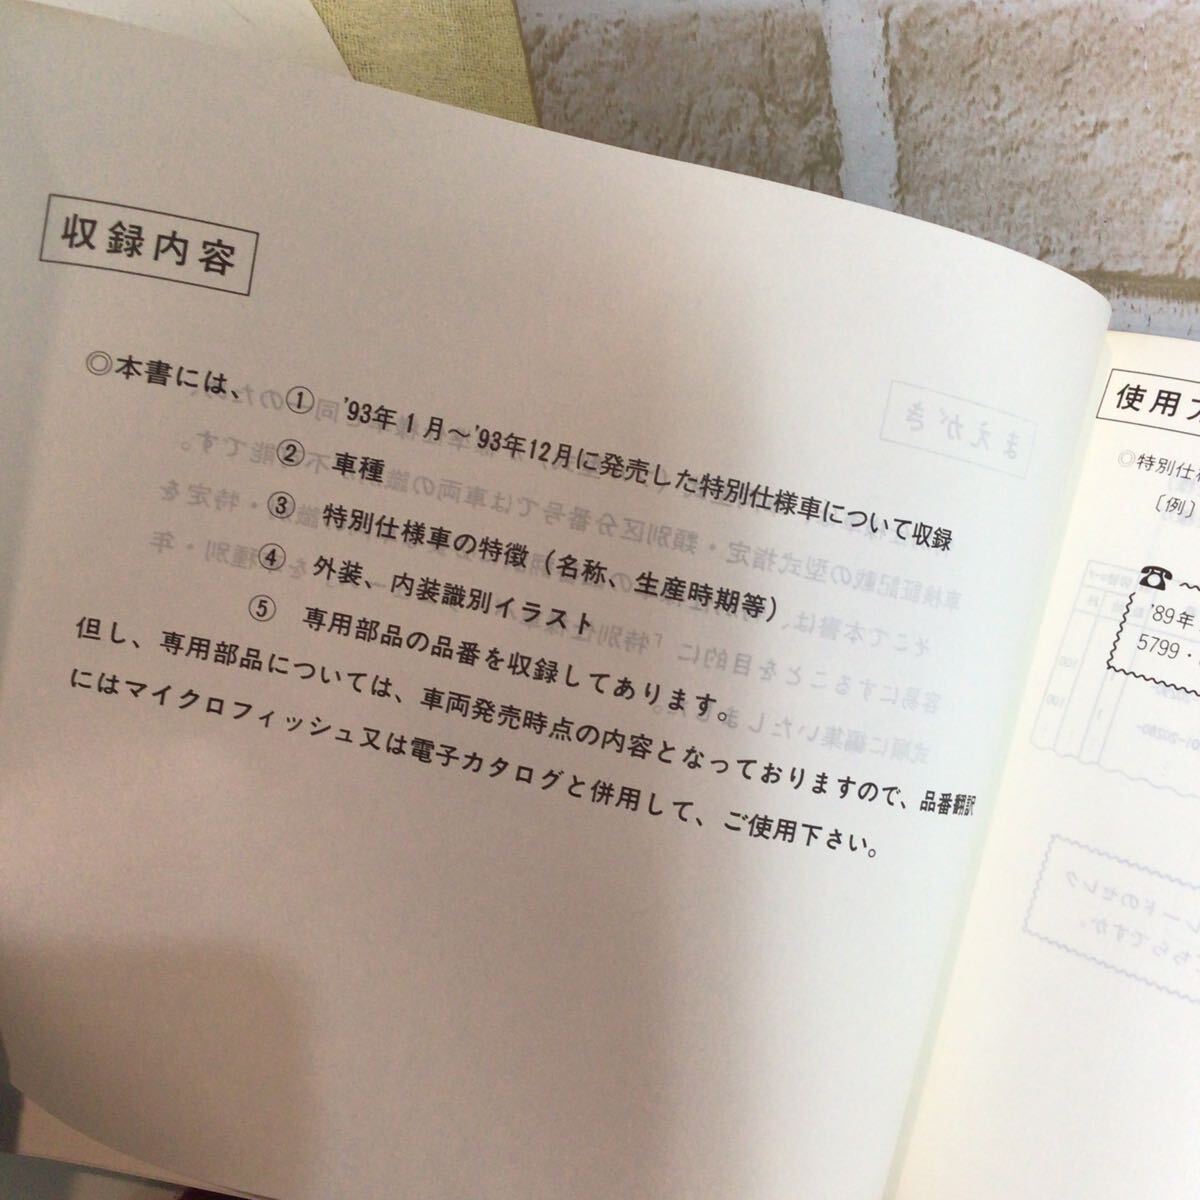 収録内容
◎本書には、 ① '93年1月～'93年12月に発売した特別仕様車について収録
② 車種
③ 特別仕様車の特徴（名称、生産時期等）
④ 外装、内装識別イラスト
⑤ 専用部品の品番を収録してあります。
但し、専用部品については、車両発売時点の内容となっておりますので、品番翻訳
にはマイクロフィッシュ又は電子カタログと併用して、ご使用下さい。
使用
◎特別仕
〔例〕
☎～
'89年
5799・
まえがき